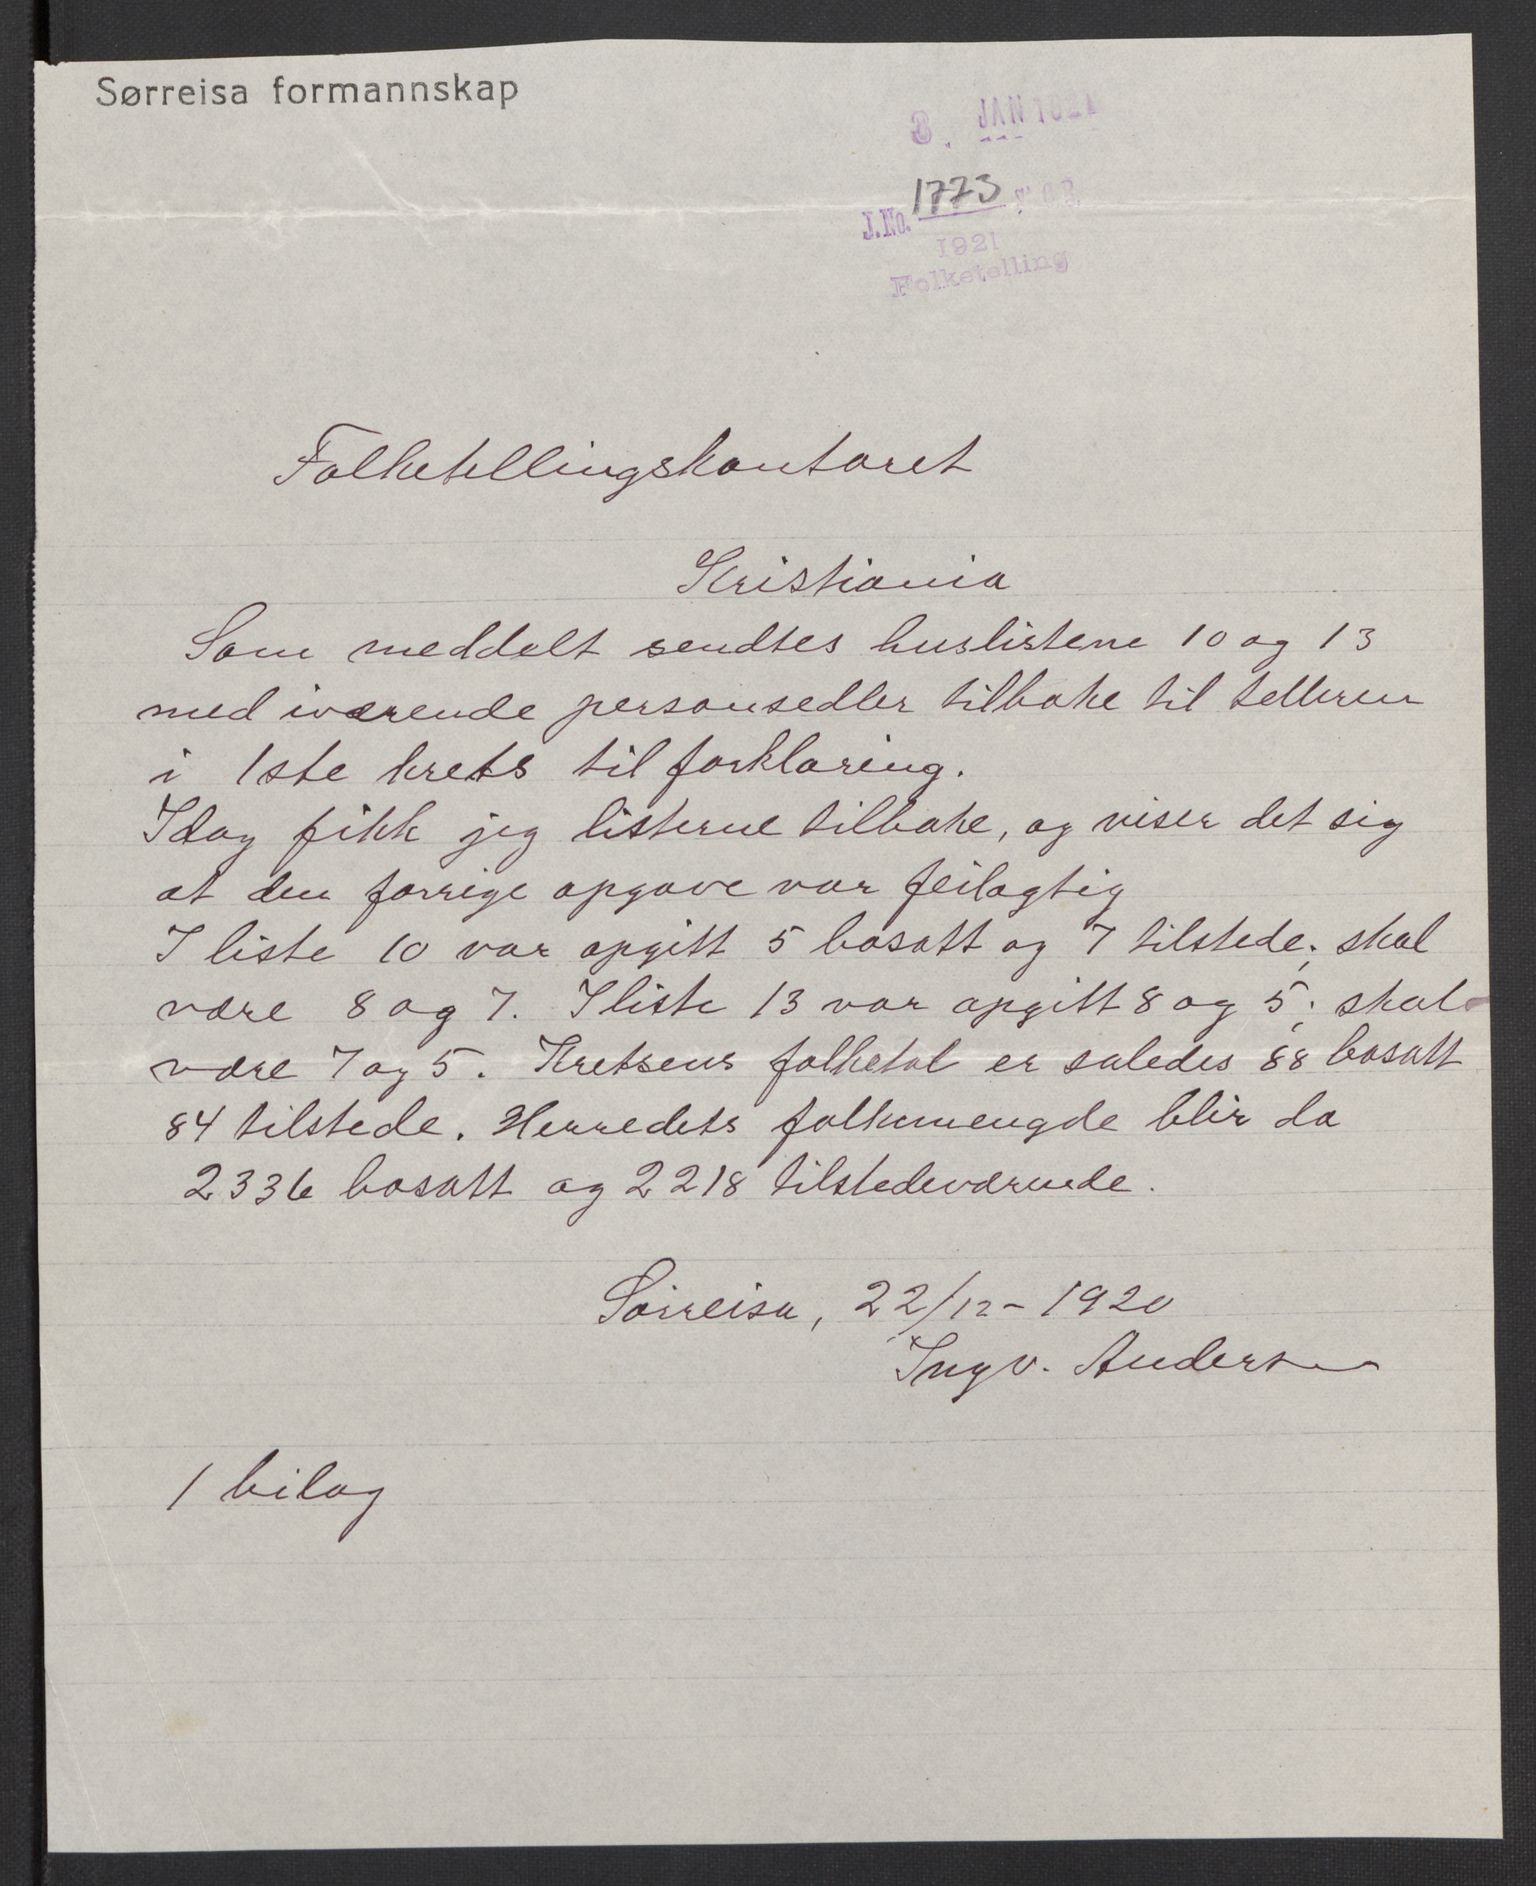 Sørreisa formannskap
3. JAN 1921
J.No. 1773
1921
Folketelling
Folketellingskontoret
Kristiania
Som meddelt sendtes huslistene 10 og 13
med iværende personsedler tilbake til telleren
i 1ste krets til forklaring.
Idag fikk jeg listerne tilbake, og viser det sig
at den forrige opgave var feilagtig
I liste 10 var opgitt 5 bosatt og 7 tilstede; skal
være 8 og 7. I liste 13 var opgitt 8 og 5; skal
være 7 og 5. Kretsens folketal er saledes 88 bosatt
84 tilstede. Herredets folkemengde blir da
2336 bosatt og 2218 tilstedeværende.
Sørreisa, 22/12 - 1920
Ingv. Andersen
1 bilag